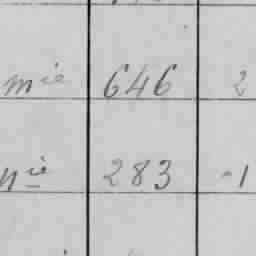 mie 646 2
nie 283 -1